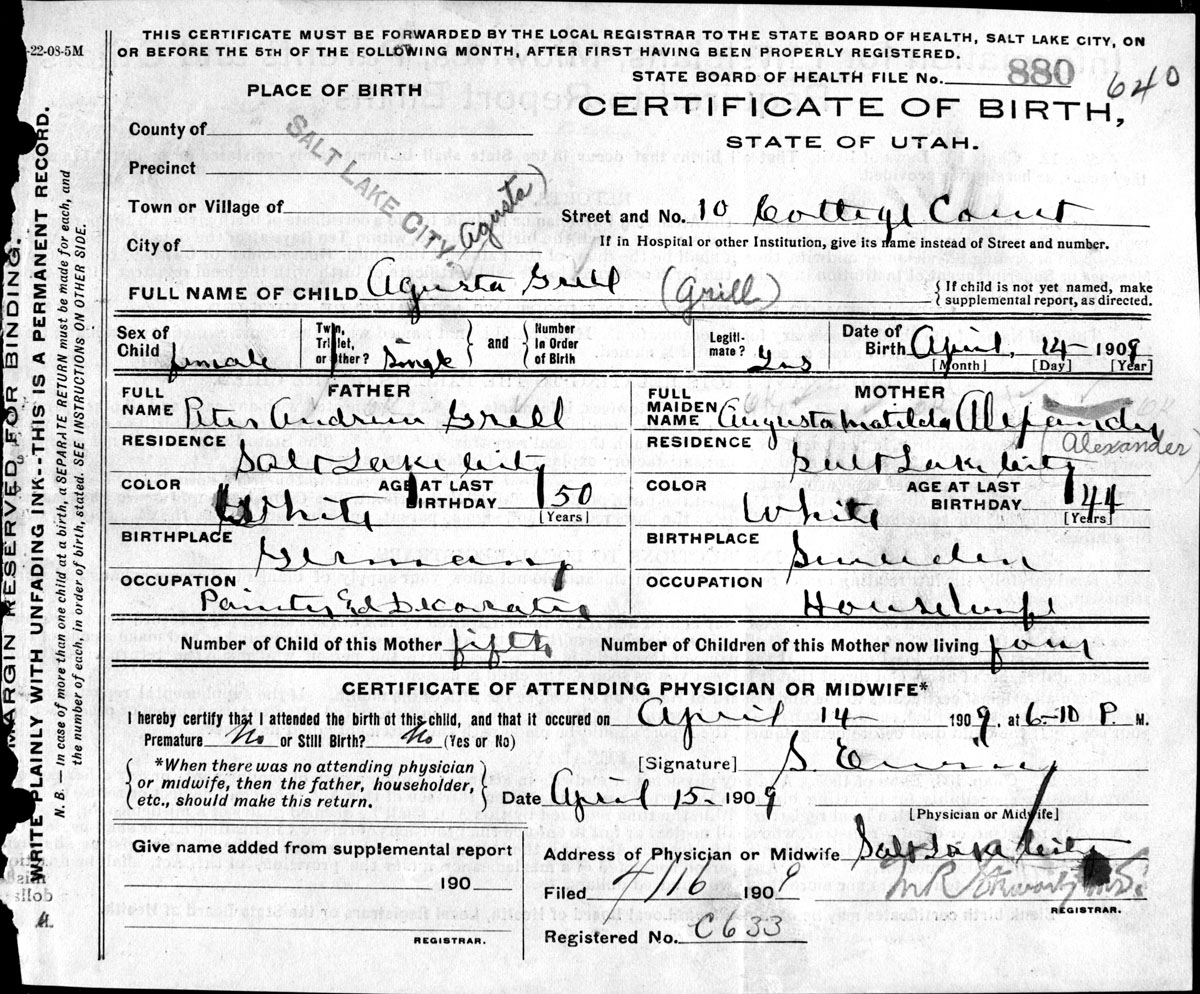 -22-08-5M
THIS CERTIFICATE MUST BE FORWARDED BY THE LOCAL REGISTRAR TO THE STATE BOARD OF HEALTH, SALT LAKE CITY, ON
OR BEFORE THE 5TH OF THE FOLLOWING MONTH, AFTER FIRST HAVING BEEN PROPERLY REGISTERED.
STATE BOARD OF HEALTH FILE No. 880 640
PLACE OF BIRTH
CERTIFICATE OF BIRTH,
STATE OF UTAH.
County of
Precinct
Town or Village of
SALT LAKE CITY.
Agusta)
Street and No. 10 Cottege Court
City of
If in Hospital or other Institution, give its name instead of Street and number.
FULL NAME OF CHILD Agusta Grell (Grill) { If child is not yet named, make
supplemental report, as directed.
Sex of Child female Twin, Triplet, or other? Single } and { Number In Order of Birth Legiti- mate? Yes Date of Birth April, 14 1909
[Month] [Day] [Year]
FATHER
MOTHER
FULL NAME Peter Andrew Grell
FULL MAIDEN NAME Augusta Matilda Alexander
(Alexander)
RESIDENCE Salt Lake City
RESIDENCE Salt Lake City
COLOR White AGE AT LAST BIRTHDAY 50 [Years]
COLOR White AGE AT LAST BIRTHDAY 44 [Years]
BIRTHPLACE Germany
BIRTHPLACE Sweeden
OCCUPATION Painter Ed Decorater
OCCUPATION Housewife
Number of Child of this Mother fifth Number of Children of this Mother now living four
CERTIFICATE OF ATTENDING PHYSICIAN OR MIDWIFE*
I hereby certify that I attended the birth ot this child, and that it occured on April 14 1909, at 6-10 P. M.
Premature No or Still Birth? No (Yes or No)
{ *When there was no attending physician
or midwife, then the father, householder,
etc., should make this return. }
[Signature] S.
Date April 15- 1909
[Physician or Midwife]
Give name added from supplemental report
190
REGISTRAR.
Address of Physician or Midwife Salt Lake City
Filed 4/16 1909
REGISTRAR.
Registered No. C633
MARGIN RESERVED FOR BINDING.
WRITE PLAINLY WITH UNFADING INK--THIS IS A PERMANENT RECORD.
N. B.— In case of more than one child at a birth, a SEPARATE RETURN must be made for each, and
the number of each, in order of birth, stated. SEE INSTRUCTIONS ON OTHER SIDE.